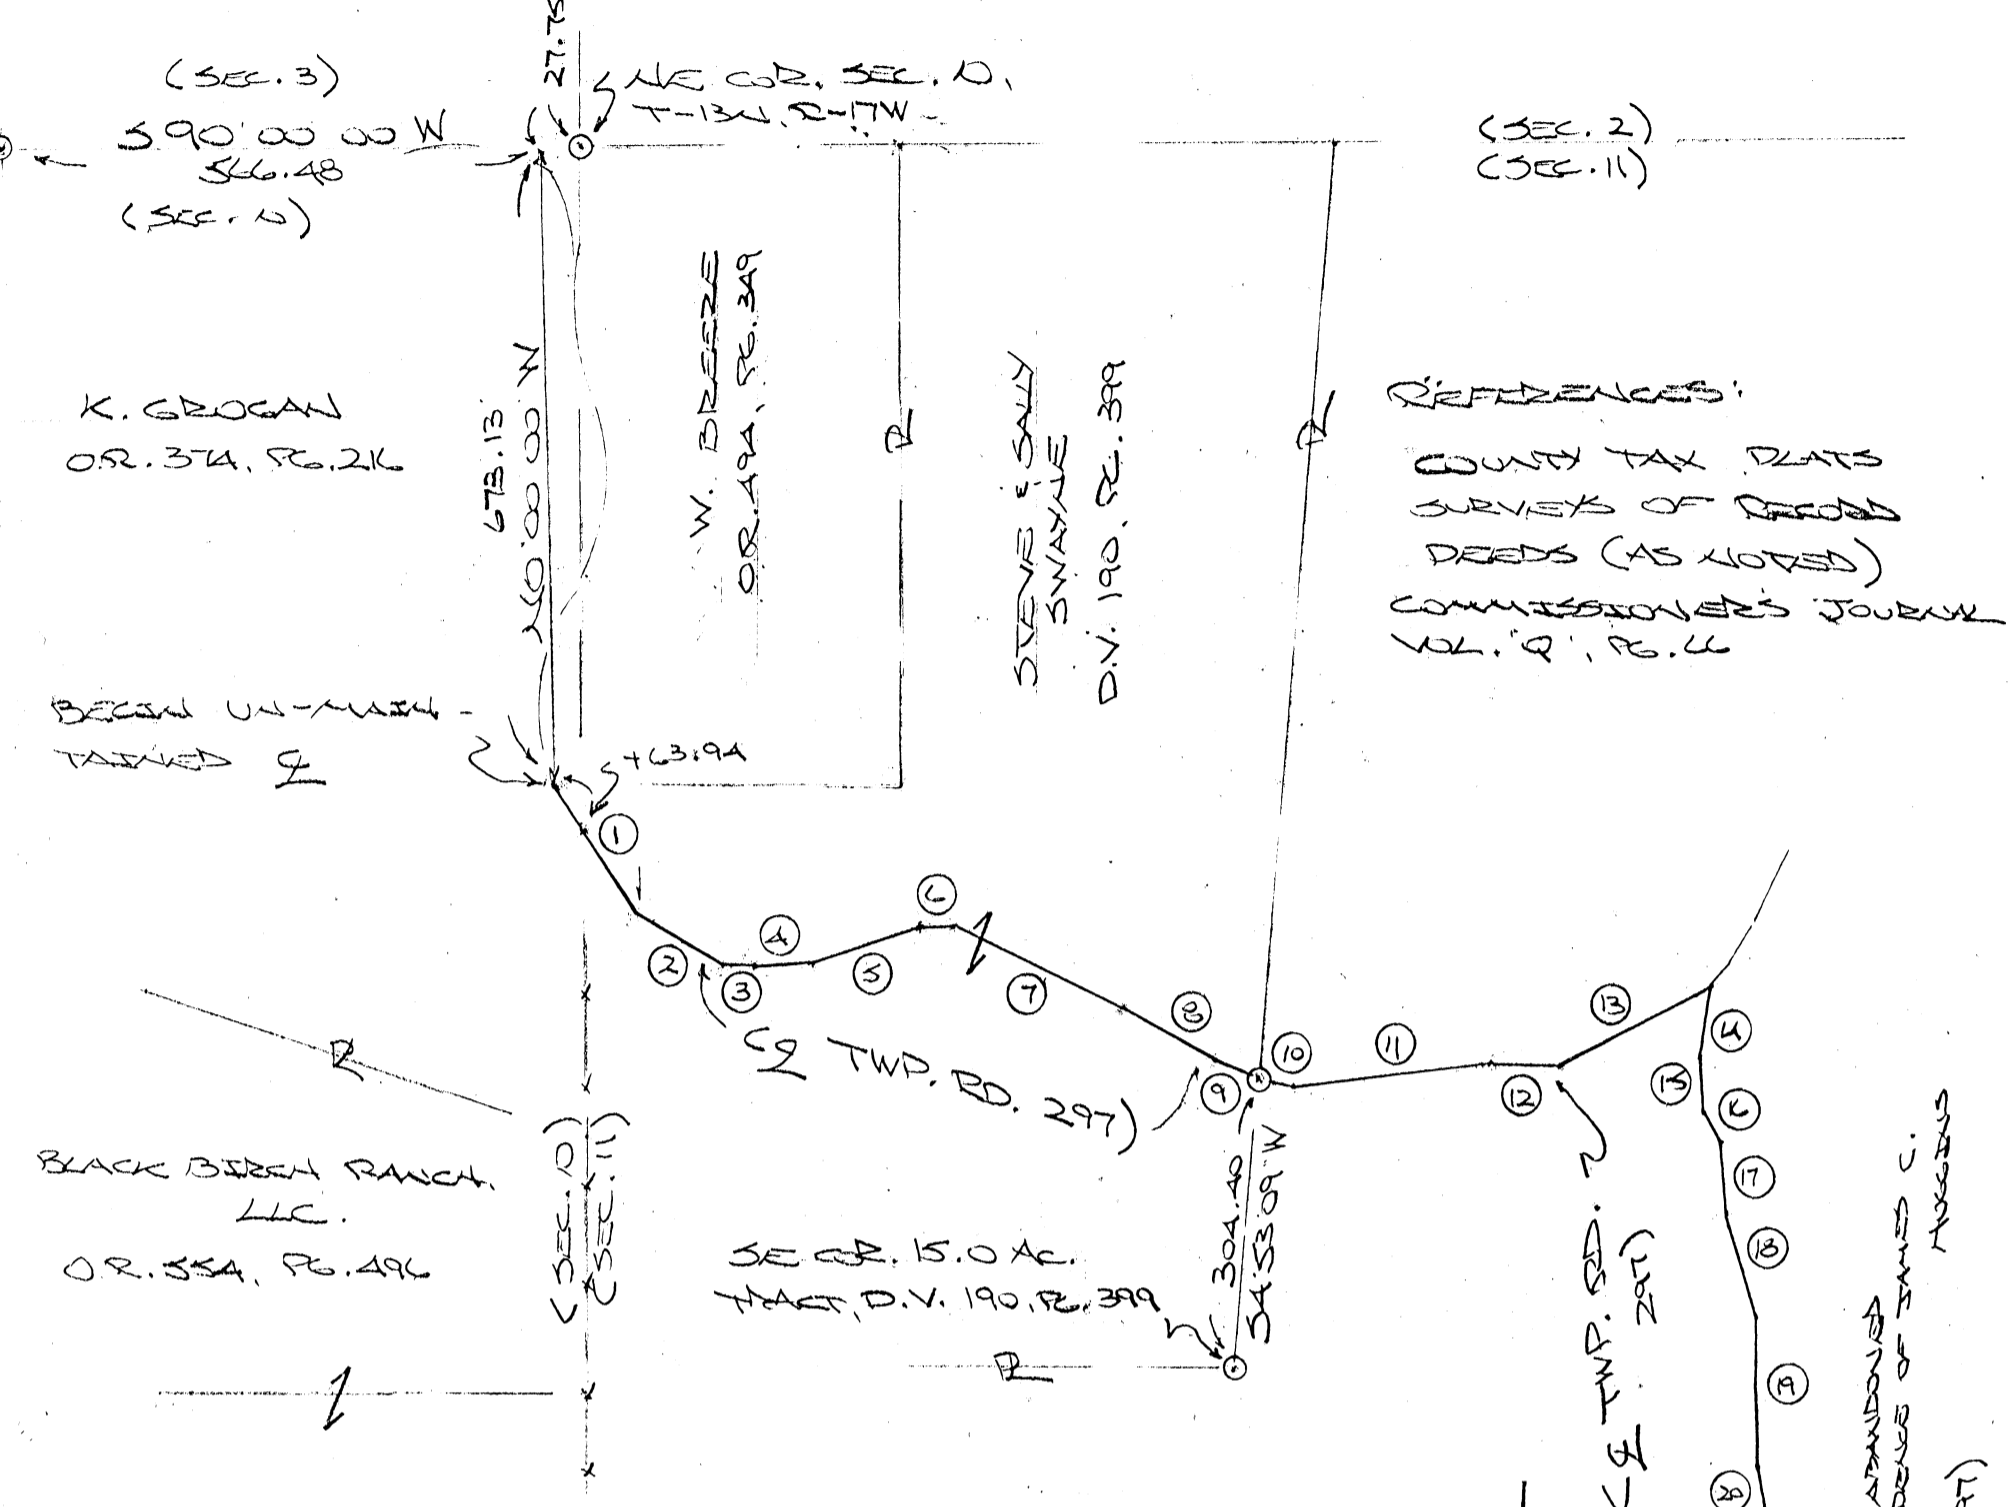 (SEC. 3)
S 90° 00' 00" W
566.48
(SEC. 10)
27.75
NE COR. SEC. 10,
T-13N, R-17W
(SEC. 2)
(SEC. 11)
K. GROGAN
O.R. 374, PG. 216
673.13'
N 0° 00' 00" W
W. BREEZE
O.R. 494, PG. 349
PL
STEVE & SALLY
SWAYNE
D.V. 190, PG. 399
PL
REFERENCES:
COUNTY TAX PLATS
SURVEYS OF RECORD
DEEDS (AS NOTED)
COMMISSIONER'S JOURNAL
VOL. "Q", PG. 66
BEGIN UN-MAIN-
TAINED CL
+63.94
1
2
3
4
5
6
7
8
9
10
11
12
13
14
15
16
17
18
19
20
(CL TWP. RD. 297)
PL
BLACK BIRCH RANCH,
LLC.
O.R. 554, PG. 496
(SEC. 10)
(SEC. 11)
SE COR. 15.0 AC.
TRACT, D.V. 190, PG. 399
PL
304.40
S 4° 53' 09" W
(CL TWP. RD.
297)
ABANDONED
OF JAMES C.
HUGGINS